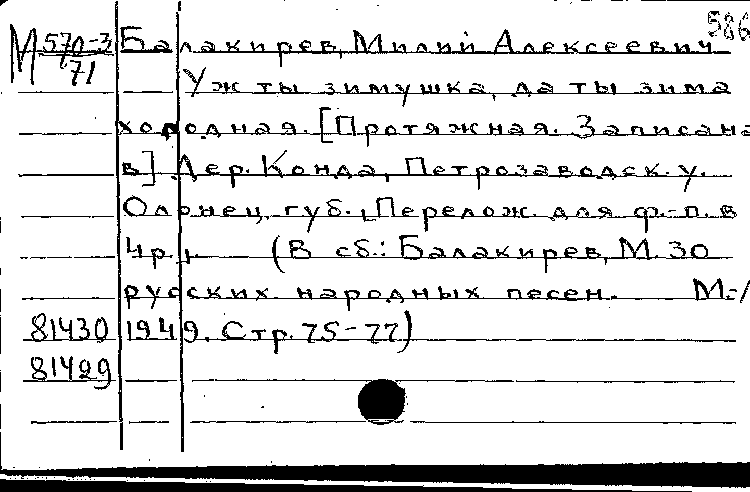 586
М 570-3/71 Балакирев, Милий Алексеевич
Уж ты зимушка, да ты зима
холодная. [Протяжная. Записана
в] Дер. Конда, Петрозаводск. у.
Олонец. губ., Перелож. для ф.-п. в
4 р., (В сб.: Балакирев, М. 30
русских народных песен. М.-/
81430 1949. Стр. 75-77)
81429